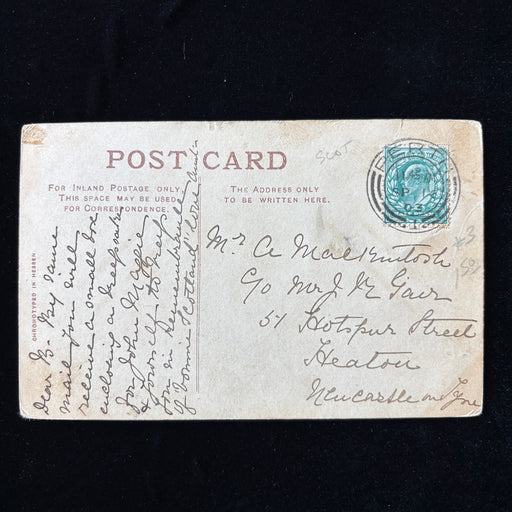 POST CARD
FOR INLAND POSTAGE ONLY
THIS SPACE MAY BE USED
FOR CORRESPONDENCE.
THE ADDRESS ONLY
TO BE WRITTEN HERE.
CHROMOTYPED IN
Dear B. By same
mail you will
receive a small box
enclosing a keepsake
for John Maggie
& yourself to keep
you in remembrance
of "Bonnie Scotland" Love
PERTH
SP
03
Scot
#3
Mr A MacKintosh
c/o Mr J K
51 Hotspur Street
Heaton
Newcastle on Tyne